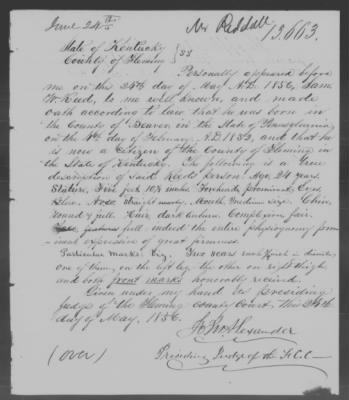 June 24th
Mr Riddall 13,663.
State of Kentucky
County of Fleming } SS
Personally appeared before
me on the 24th day of May A.D. 1856, Sam
W. Reed, to me well known, and made
oath according to law that he was born in
the County of Beaver, in the State of Pennsylvania,
on the 4th day of February A.D. 1832, and that he
is now a Citizen of the County of Fleming in
the State of Kentucky. The following is a true
description of said Reeds person: Age 24 years.
Stature, Five feet 10¾ inches. Forehead, prominent. Eyes
blue. Nose straight mostly. Mouth, Medium size. Chin,
round & full. Hair, dark Auburn. Complexion fair.
features full: indeed the entire physiognomy prom-
inent expressive of great firmness.
Particular marks. Viz. Two years each inch in
one of them, on the left leg, the other on right thigh
and both front marks honorably recived.
Given under my hand as Presiding
judge of the Fleming County Court, this 24th
day of May, 1856.
Alexander
Presiding Judge of the F.C.C.
(over)